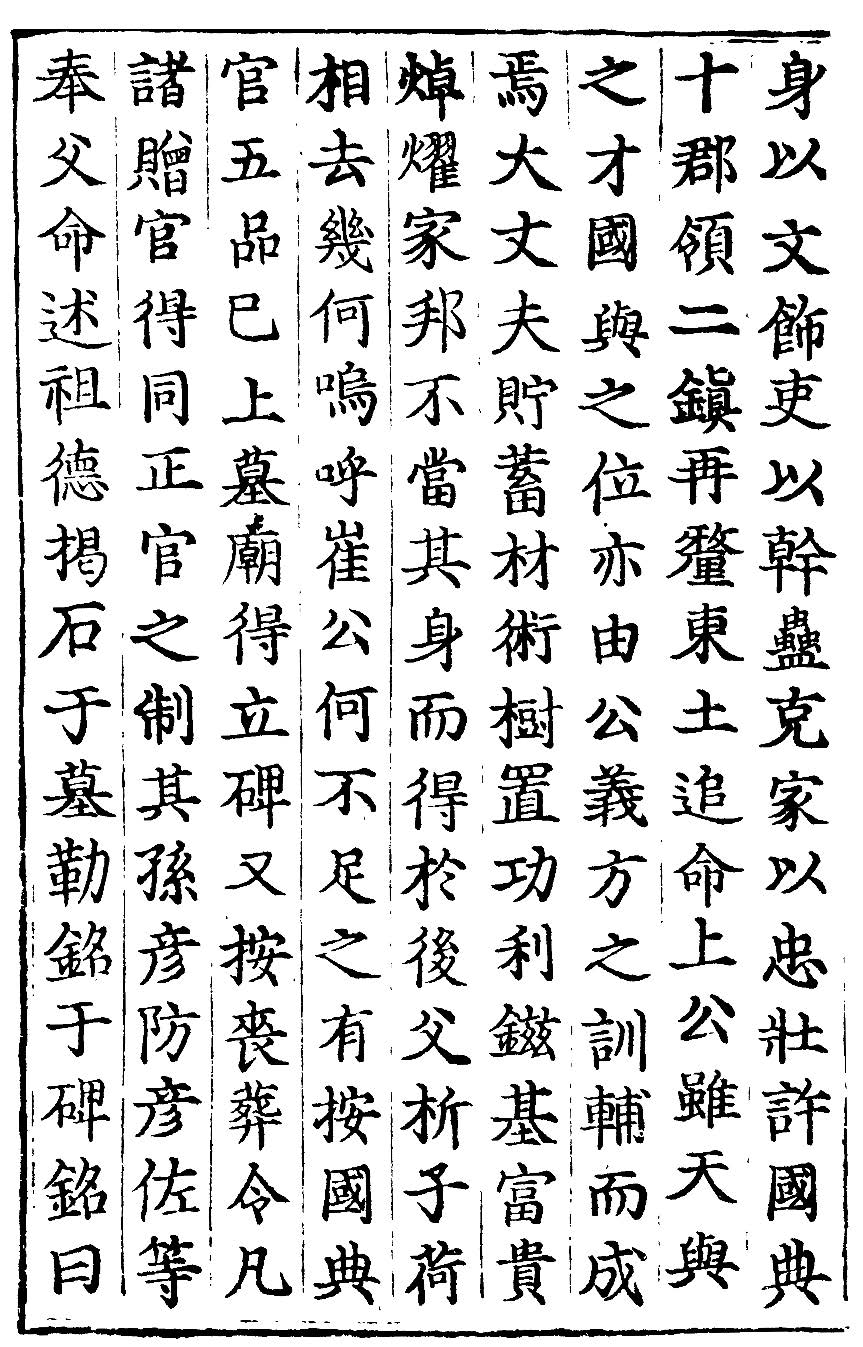 身以文飾吏以幹蠱克家以忠壯許國典
十郡領二鎭再釐東土追命上公雖天與
之才國與之位亦由公義方之訓輔而成
焉大丈夫貯蓄材術樹置功利鎡基富貴
焯燿家邦不當其身而得於後父析子荷
相去幾何嗚呼崔公何不足之有按國典
官五品已上墓廟得立碑又按喪葬令凡
諸贈官得同正官之制其孫彦防彦佐等
奉父命述祖德揭石于墓勒銘于碑銘曰